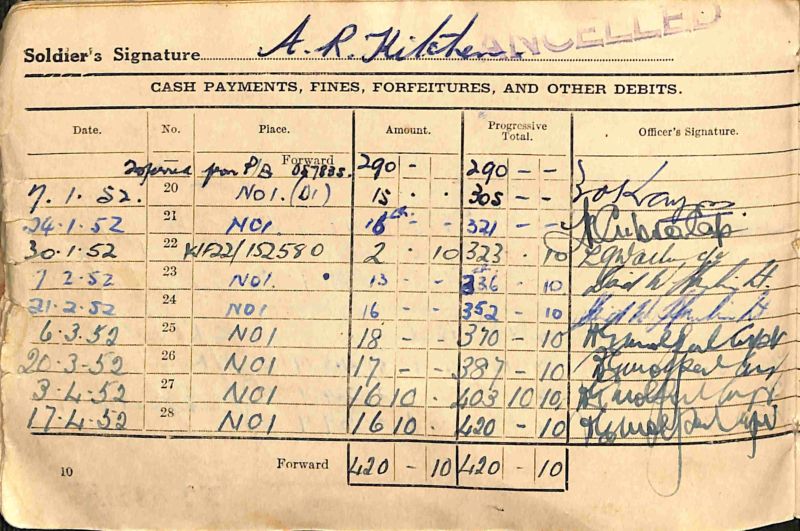 CANCELLED
Soldier's Signature A. R. Kitchen
CASH PAYMENTS, FINES, FORFEITURES, AND OTHER DEBITS.
Date. No. Place. Amount. Progressive Total. Officer's Signature.
Forward from P/B 057835. 290 - 290 - -
7.1.52. 20 NO1. (D1) 15 . . 305 - -
24.1.52 21 NO1. 16 321 - -
30.1.52 22 KF22/152580 2 . 10 323 . 10
7.2.52 23 NO1. 13 - - 336 - 10
21.2.52 24 NO1 16 - - 352 - 10
6.3.52 25 NO1 18 - - 370 - 10
20.3.52 26 NO1 17 - - 387 - 10
3.4.52 27 NO1 16 10 . 403 10 10
17.4.52 28 NO1 16 10 . 420 - 10
10 Forward 420 - 10 420 - 10